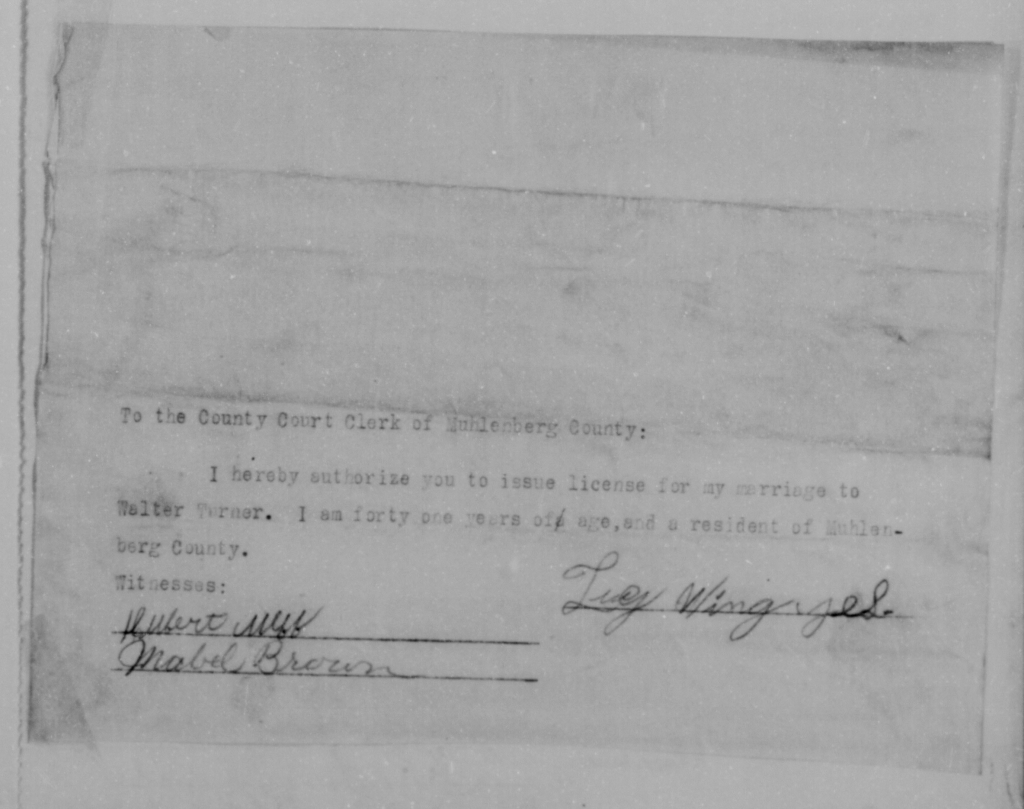 To the County Court Clerk of Muhlenberg County:
I hereby authorize you to issue license for my marriage to
Walter Turner. I am forty one years of age, and a resident of Muhlen-
berg County.
Witnesses:
Lucy
Hubert
Mabel Brown